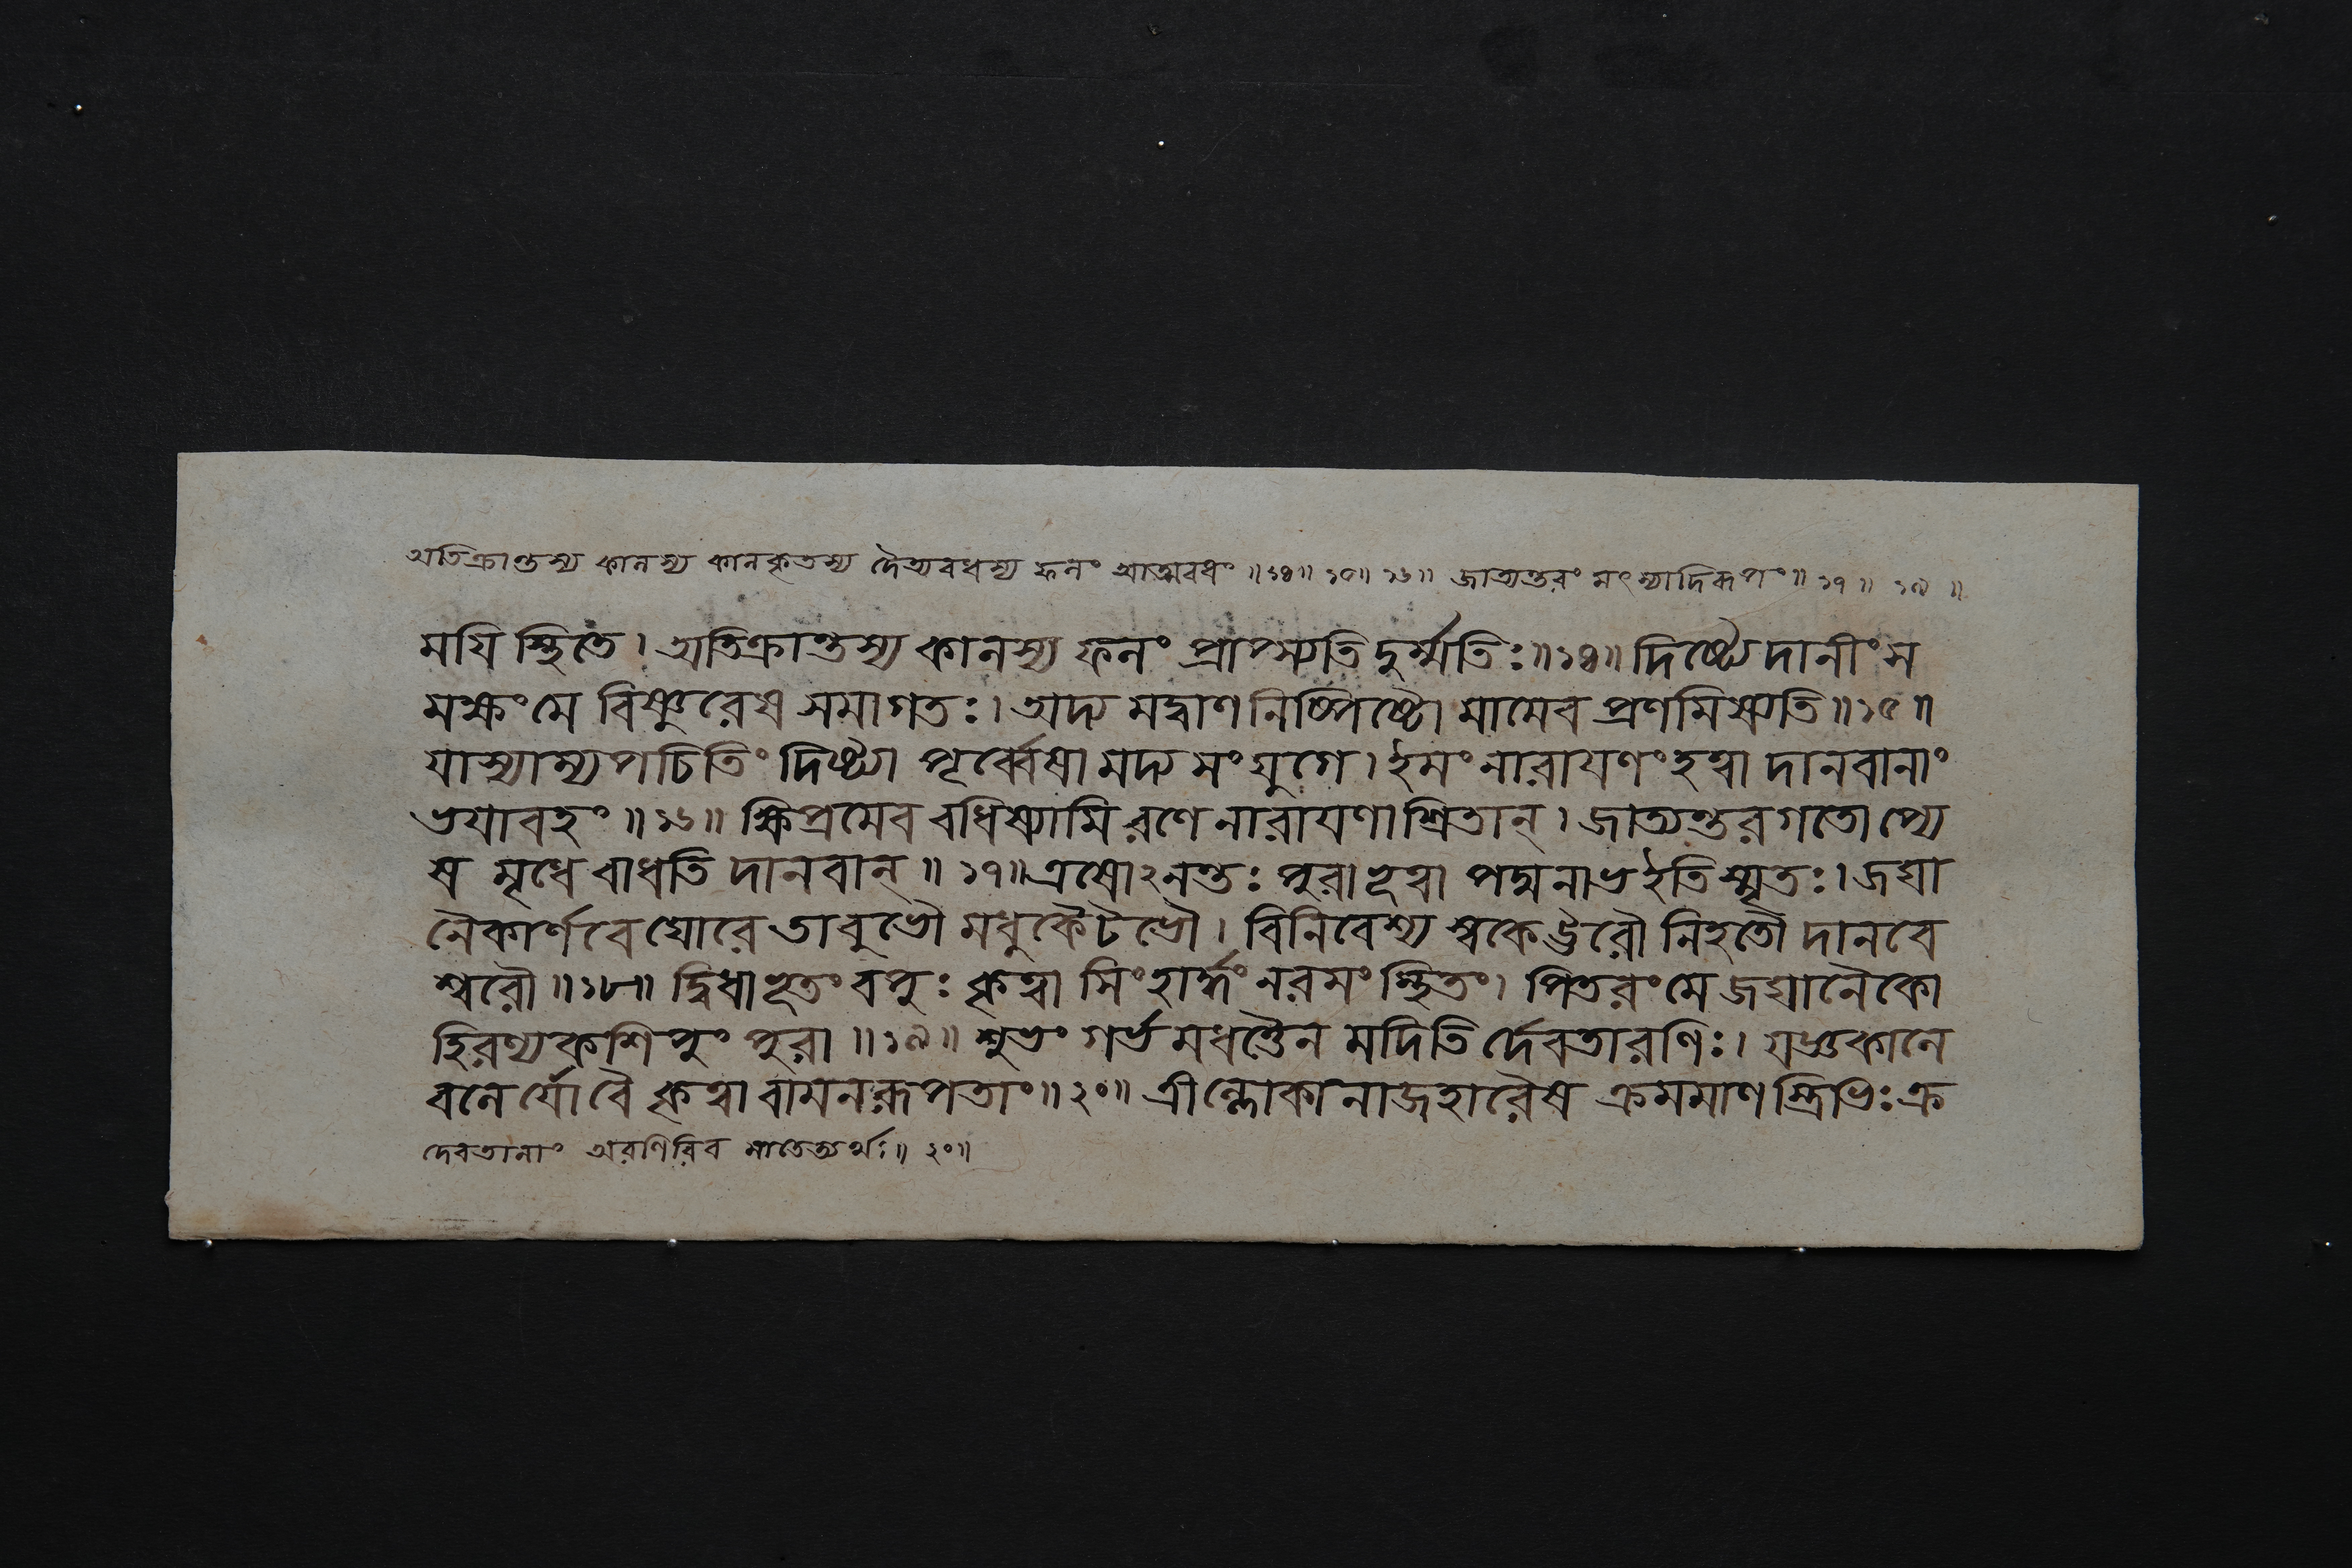 অতিক্রান্তস্য কালস্য কালকৃতস্য দৈত্যবধস্য ফলং আত্মবধং ॥১৪॥ ১৫॥ ১৬॥ জাত্যন্তরং মৎস্যাদিরূপং॥ ১৭॥ ১৯ ॥
ময়ি স্থিতে। অতিক্রান্তস্য কালস্য ফলং প্রাপ্স্যতি দুর্ম্মতিঃ॥১৪॥ দিষ্ট্যেদানীং স
মক্ষং মে বিষ্ণুরেষ সমাগতঃ। অদ্য মদ্বাণনিষ্পিষ্টো মামেব প্রণমিষ্যতি॥১৫॥
যাস্যাম্যপচিতিং দিষ্ট্যা পূর্ব্বেষামদ্য সংযুগে। ইমং নারায়ণং হত্বা দানবানাং
ভয়াবহং॥১৬॥ ক্ষিপ্রমেব বধিষ্যামি রণে নারায়ণাশ্রিতান্। জাত্যন্তরগতোপ্যে
ষ মৃধে বাধতি দানবান্॥ ১৭॥এষোঽনন্তঃ পুরা ভূত্বা পদ্মনাভ ইতি স্মৃতঃ। জঘা
নৈকার্ণবে ঘোরে তাবুভৌ মধুকৈটভৌ। বিনিবেশ্য স্বকে ঊরৌ নিহতৌ দানবে
শ্বরৌ॥১৮॥ দ্বিধাভূতং বপুঃ কৃত্বা সিংহার্দ্ধং নরসংস্থিতং। পিতরং মে জঘানৈকো
হিরণ্যকশিপুং পুরা॥১৯॥ শুভং গর্ভমধত্তৈনমদিতির্দেবতারণিঃ। যজ্ঞকালে
বলের্যো বৈ কৃত্বা বামনরূপতাং॥২০॥ ত্রীন্লোকানাজহারৈষ ক্রমমাণস্ত্রিভিঃ ক্র
দেবতানাং অরণিরিব মাতেত্যর্থঃ॥ ২০॥